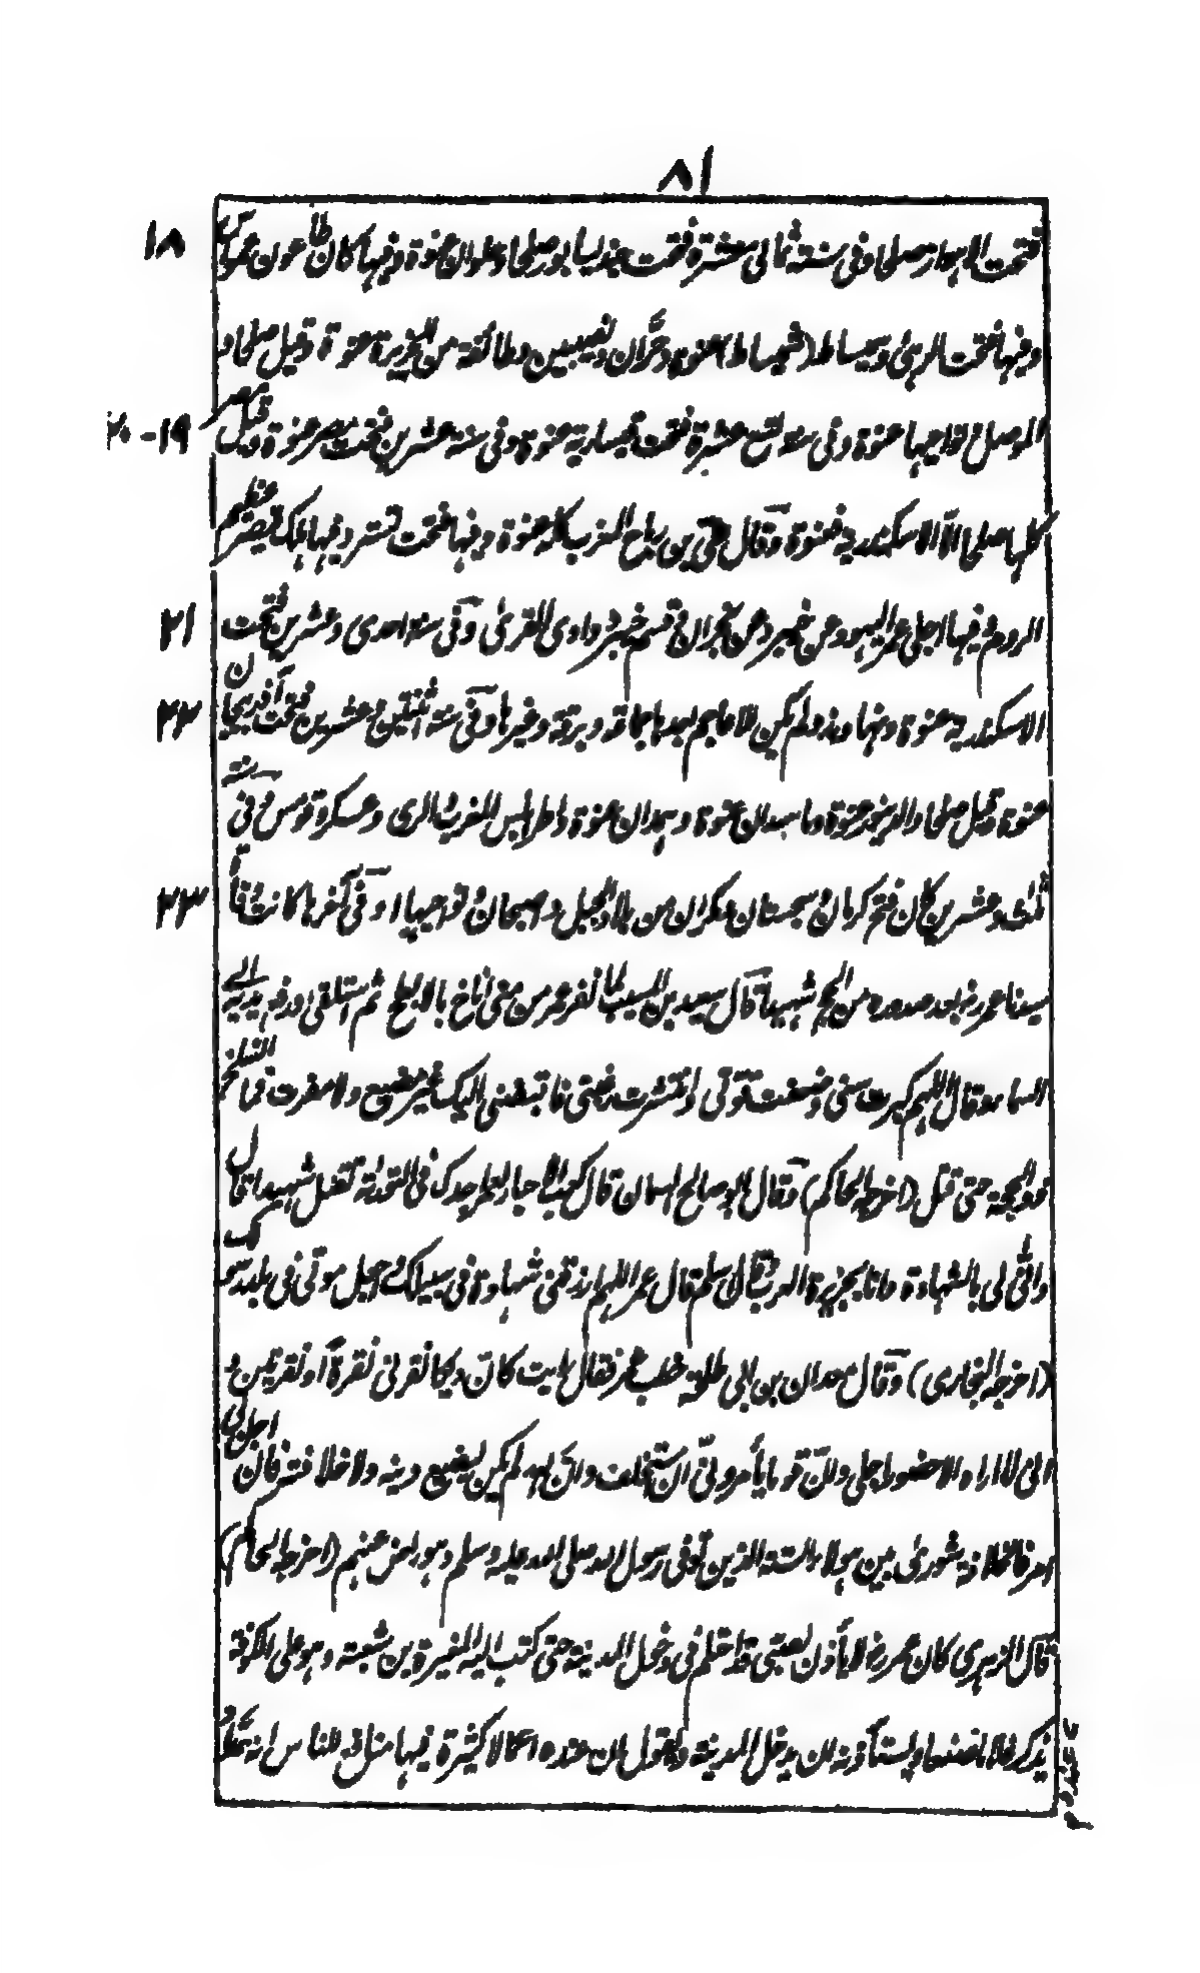 ٨١
١٨
فتحت الاهواز صلحا وفى سنة ثمانى عشرة فتحت جنديسابور صلحا وحلوان عنوة وفيها كان طاعون عمواس
وفيها فتحت الرهى وسميساط (شميساط) عنوة وحرّان ونصيبين وطائفة من الجزيرة عنوة وقيل صلحا و
١٩-٢٠
الموصل ونواحيها عنوة وفى سنة تسع عشرة فتحت قيسارية عنوة وفى سنة عشرين فتحت مصر عنوة وقيل مصر
كلها صلحا الّا الاسكندرية فعنوة وقال على بن رباح المغرب كله عنوة وفيها فتحت تستر وفيها هلك قيصر عظيم
٢١
الروم وفيها اجلى عمر اليهود عن خيبر وعن نجران وقسم خيبر ووادى القرىٰ وفى سنة احدى وعشرين فتحت
٢٢
الاسكندرية عنوة ونهاوند ولم يكن للاعاجم بعدها جماعة وبرقة وغيرها وفى سنة اثنتين وعشرين فتحت آذربيجان
عنوة وقيل صلحا والدينور عنوة وماسبدان عنوة وهمدان عنوة واطرابلس المغرب والرى وعسكر وقومس وفى سنة
٢٣
ثلث وعشرين كان فتح كرمان وسجستان ومكران من بلاد الجبل واصبهان ونواحيها وفى آخرها كانت وفاة
سيدنا عمر رض بعد صدوره من الحج شهيدا قال سعيد بن المسيب لما نفر عمر من منى اناخ بالابطح ثم استلقى ورفع يديه الى
السماء وقال اللهم كبرت سنى وضعفت قوتى وانتشرت رعيتى فاقبضنى اليك غير مضيع ولا مفرط فما انسلخ
ذو الحجة حتى قتل (اخرجه الحاكم) وقال ابو صالح السمان قال كعب الاحبار لعمر اجدك فى التوراة تقتل شهيدا قال
وانّى لى بالشهادة وانا بجزيرة العرب وقال اسلم قال عمر اللهم ارزقنى شهادة فى سبيلك واجعل موتى فى بلد رسولك
(اخرجه البخارى) وقال معدان بن ابى طلحة خطب عمر فقال رايت كان ديكا نقرنى نقرة او نقرتين و
انى لا اراه الا حضور اجلى وانّ قوما يأمرونّى ان استخلف وان الله لم يكن ليضيع دينه ولا خلافته فان عجل بى
امر فالخلافة شورى بين هولاء الستة الذين توفى رسول الله صلى الله عليه وسلم وهو راض عنهم (اخرجه الحاكم)
قال الزهرى كان عمر رض لا يأذن لصبى قد احتلم فى دخول المدينة حتى كتب اليه المغيرة بن شعبة وهو على الكوفة
يذكر غلاما صنعا ويستأذنه ان يدخل المدينة ويقول ان عنده اعمالا كثيرة فيها منافع للناس انه